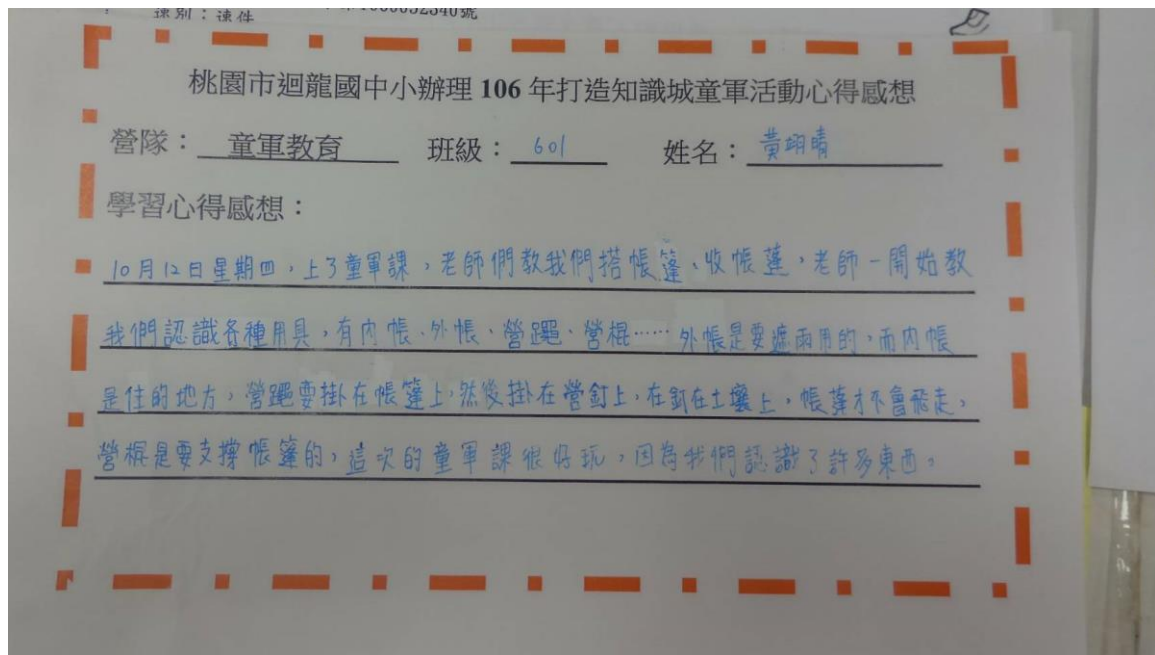 速別：速件
桃園市迴龍國中小辦理 106 年打造知識城童軍活動心得感想
營隊：童軍教育 班級：601 姓名：黃翊晴
學習心得感想：
10月12日星期四，上了童軍課，老師們教我們搭帳篷、收帳蓬，老師一開始教
我們認識各種用具，有內帳、外帳、營繩、營棍……外帳是要遮雨用的，而內帳
是住的地方，營繩要掛在帳篷上，然後掛在營釘上，在釘在土壤上，帳篷才不會飛走，
營棍是要支撐帳篷的，這次的童軍課很好玩，因為我們認識了許多東西。